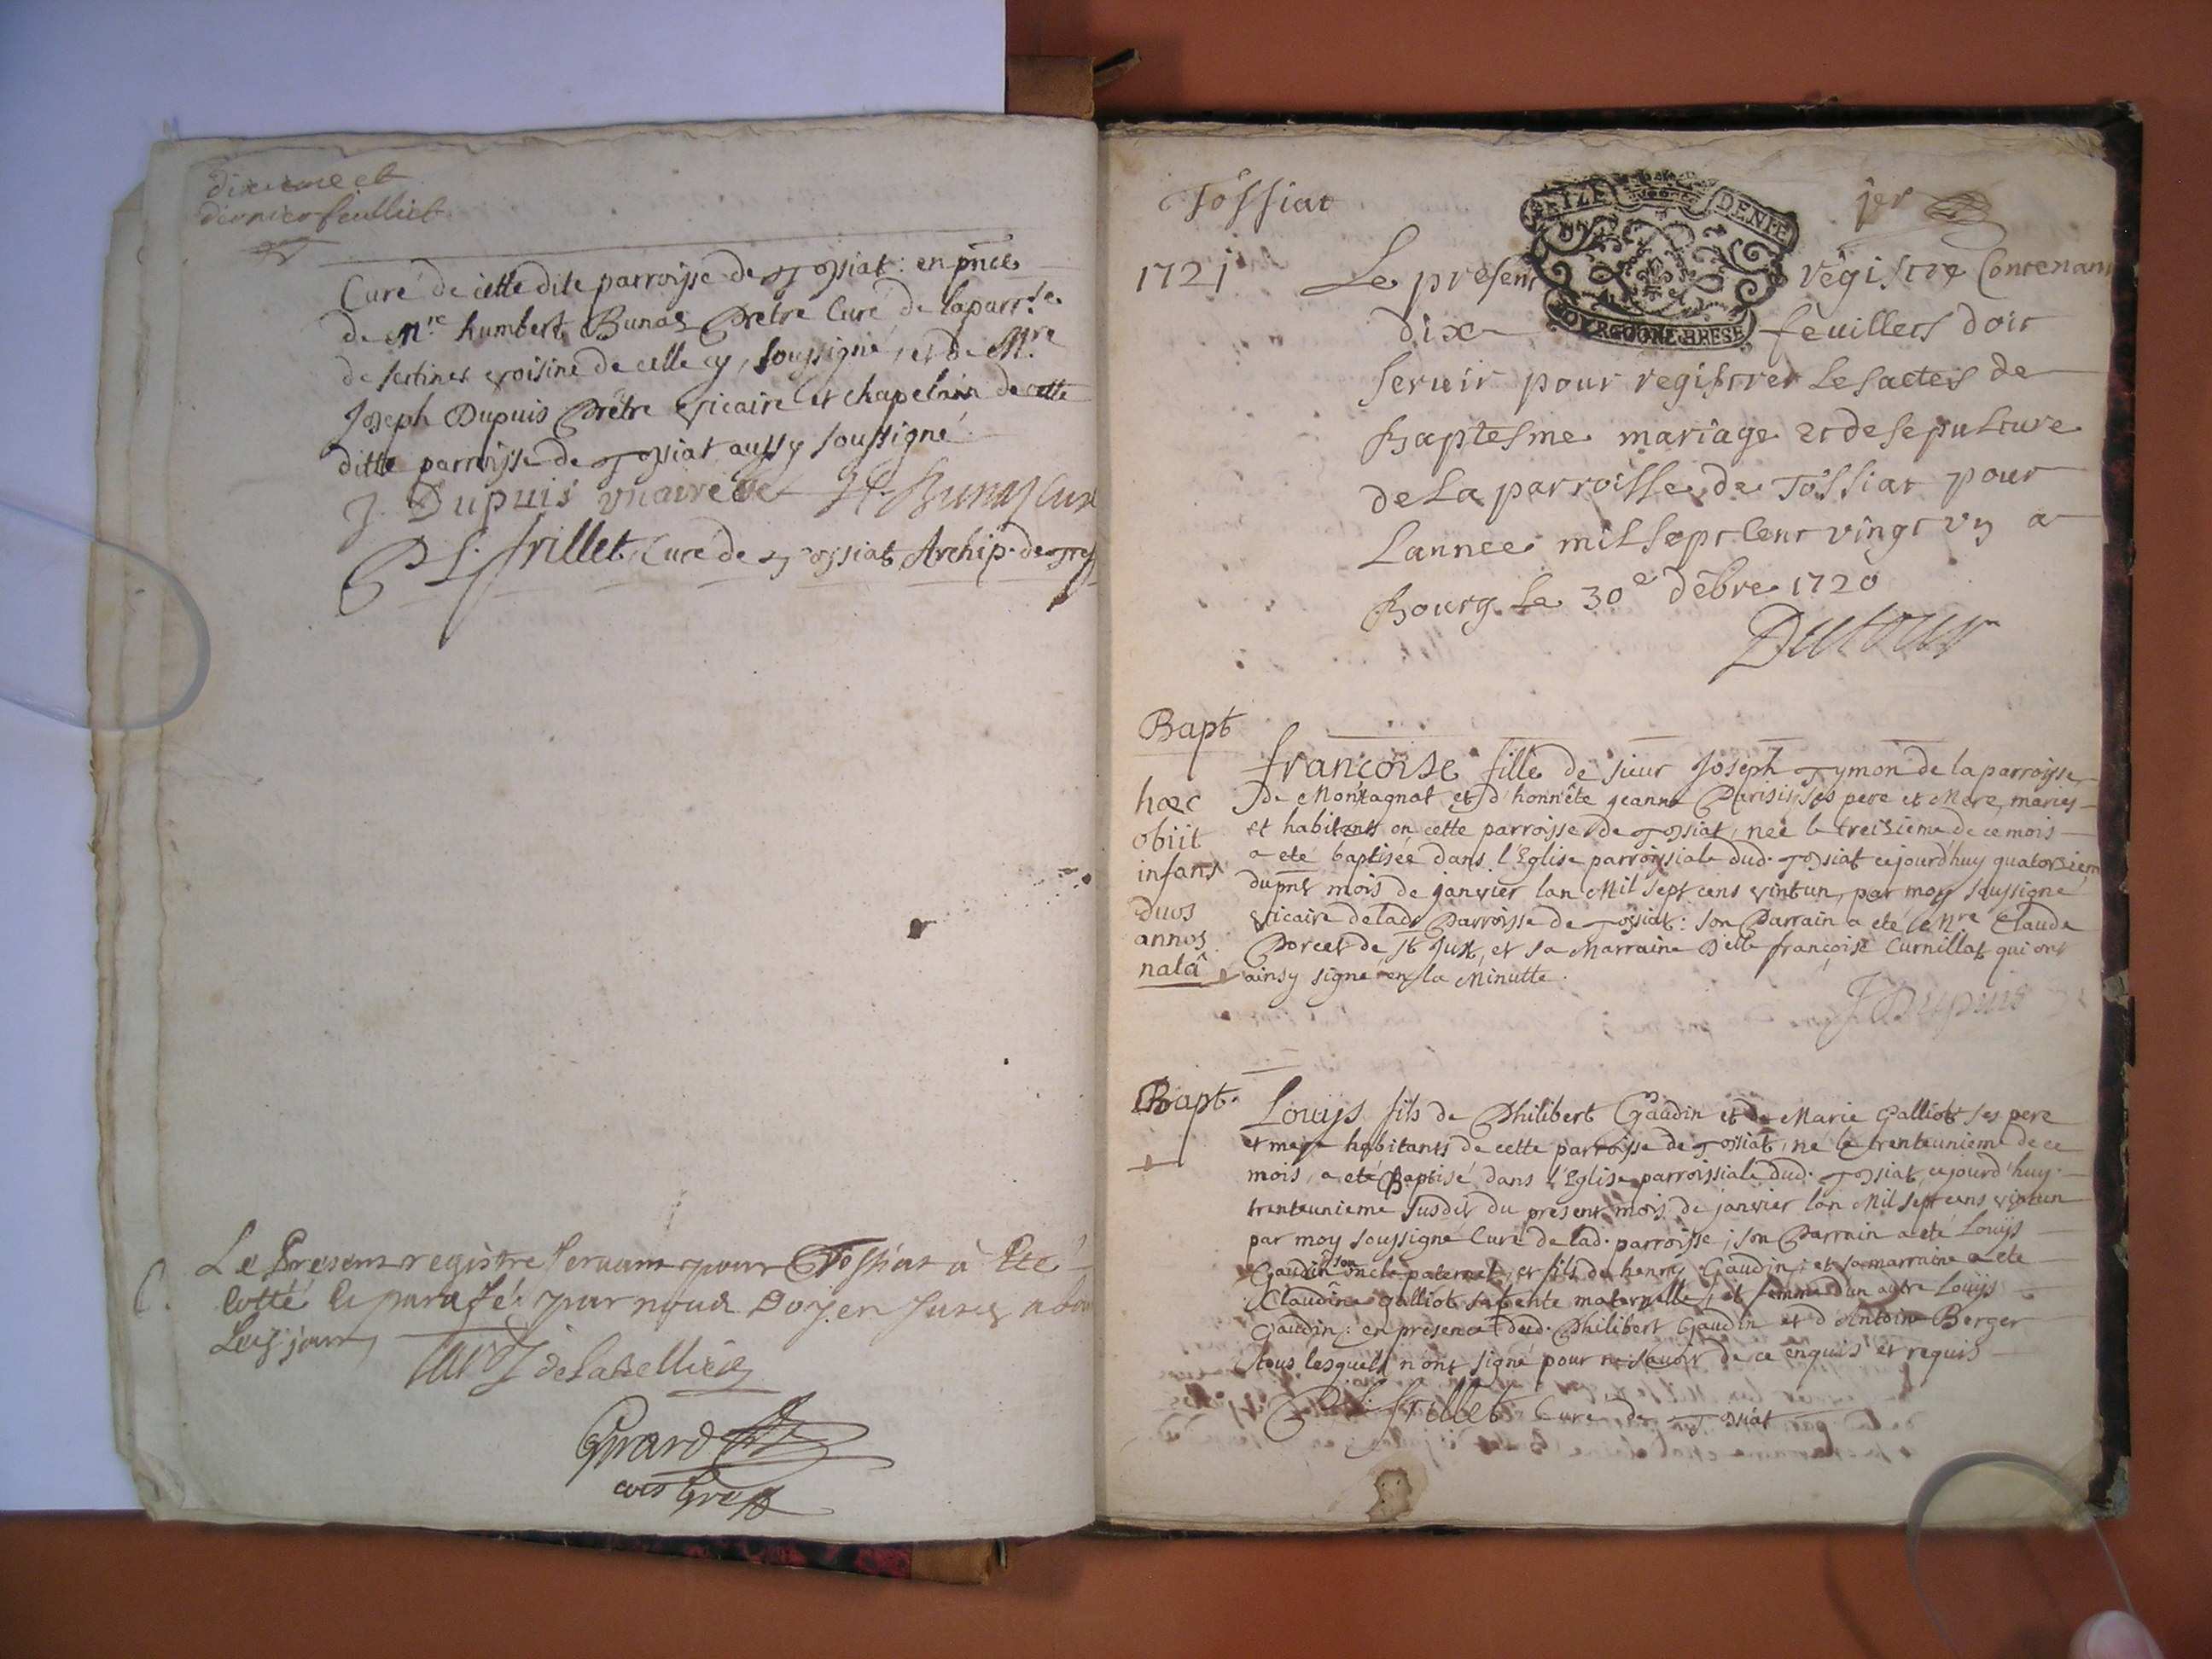 dixieme et
dernier feuillet
Curé de cette dite parroisse de Tossiat : en pnce
de Mre humbert Bunas Prêtre Curé de la parrse
de sertines voisine de celle cy, soussigné, et de Mre
Joseph Dupuis Prêtre vicaire et chapelain de cette
ditte parroisse de Tossiat aussy soussigné
J. Dupuis vicaire H. Bunas Curé
P L. frillet, Curé de Tossiat Archip. de
Le Present registre servant pour Tossiat à Eté
cotté et parafé par nous Doyen
Girard
Tossiat
1er
SEIZE DENIE
BOVRGOGNE BRESE
1721 Le present registre Contenant
dix feuillets doit
servir pour registrer les actes de
Baptesme mariage et de sepulture
de La parroisse de Tossiat pour
Lannee mil sept cent vingt vn a
Bourg le 30e debre 1720
Dutour
Bapt
françoise fille de sieur Joseph Tymon de la parroisse
de Montagnat et d'honnête jeanne Parisis, ses pere et Mere, mariés
et habitants en cette parroisse de Tossiat, née le treizieme de ce mois
a eté baptisée dans l'Eglise parroissiale dud. Tossiat cejourd'huy quatorziem
du pnt mois de janvier lan Mil sept cens vintun, par moy soussigné
vicaire de lade Parroisse de Tossiat : son Parrain a eté Mre Claude
Porcet de St Just, et sa Marraine Delle françoise Curnillat qui ont
ainsy signé en la Minutte.
hæc
obiit
infans
duos
annos
natâ
J Dupuis
Bapt.
Louys fils de Philibert Gaudin et de Marie Galliot ses pere
et mere habitants de cette parroisse de Tossiat, né le trenteunieme de ce
mois, a eté Baptisé dans l'Eglise parroissiale dud. Tossiat, cejourd'huy
trenteunieme susdit du present mois de janvier lan Mil sept cens vintun
par moy soussigné Curé de lad. parroisse ; son Parrain a eté Louys
Gaudin son oncle paternel, et fils de henry Gaudin ; et sa marraine a eté
Claudine galliot sa tente maternelle, et femme d'un autre Louys
Gaudin : en presence dud. Philibert Gaudin et d'Antoine Berger
tous lesquels n'ont signé pour ne savoir de ce enquis et requis
P L. frillet Curé de Tossiat